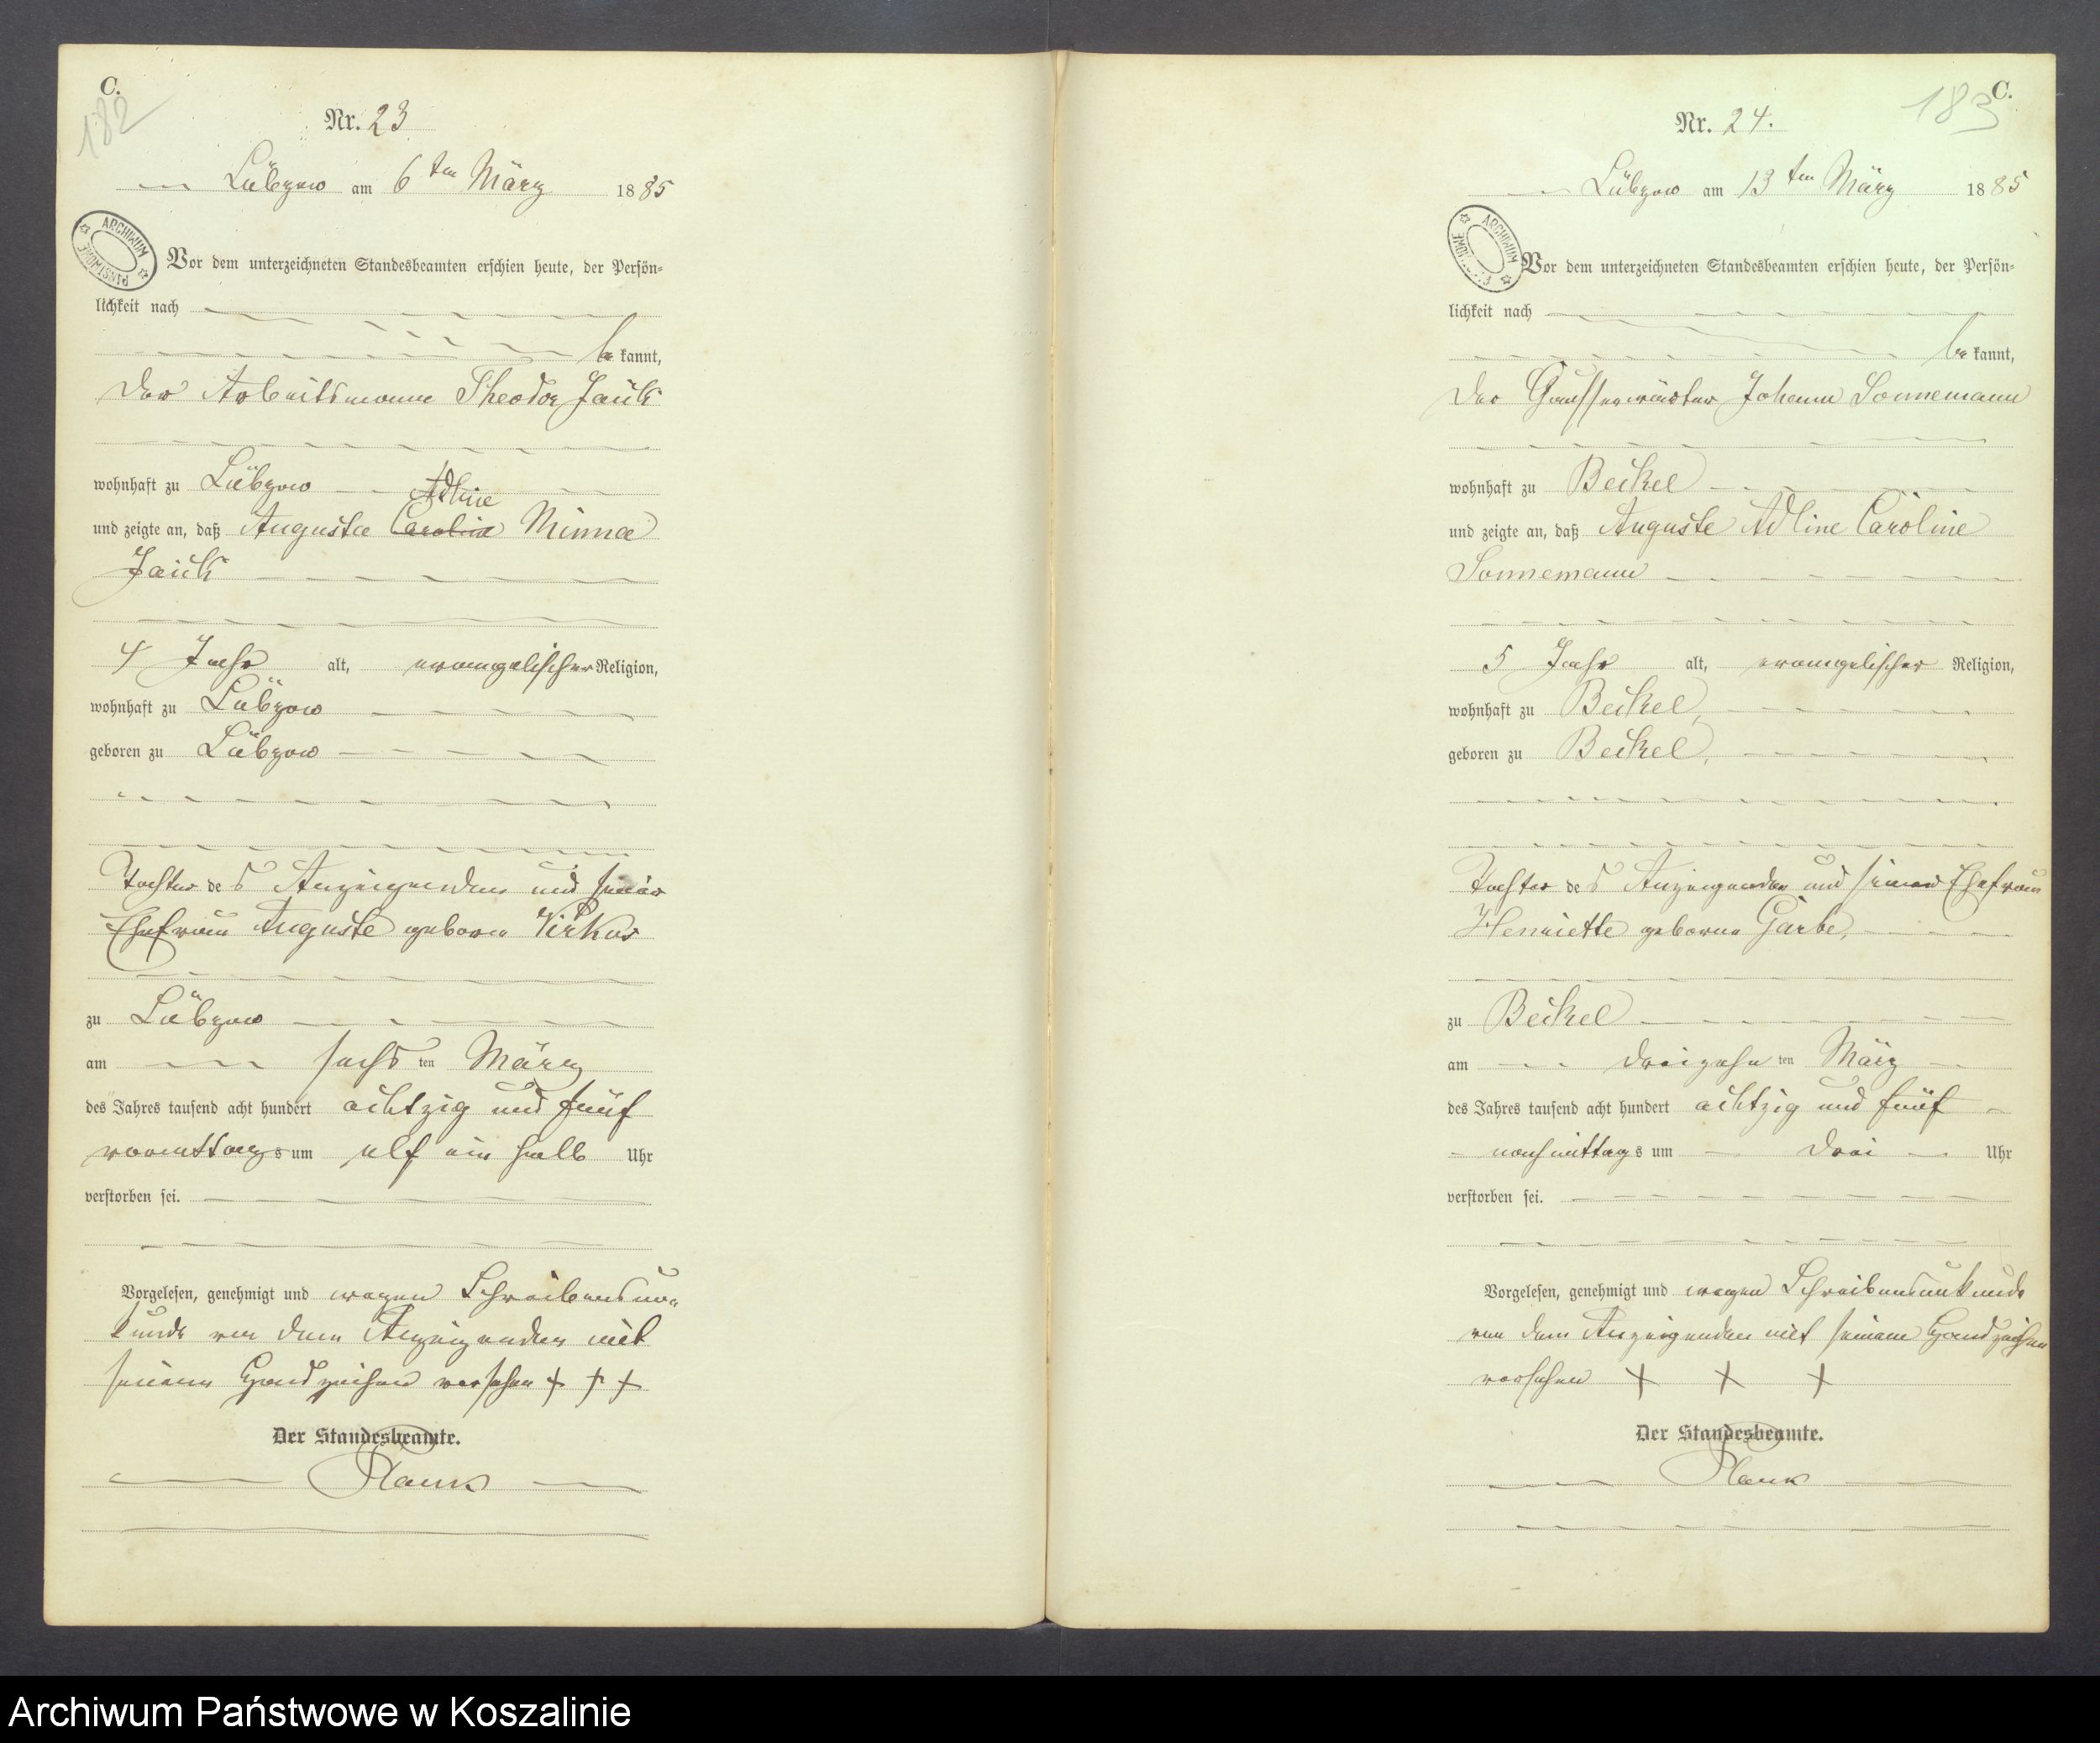 C.
182
Nr. 23
Lübzow am 6 ten März 1885
ARCHIWUM PAŃSTWOWE
Vor dem unterzeichneten Standesbeamten erschien heute, der Persön=
lichkeit nach
be kannt,
der Arbeitsmann Theodor Jaiik
wohnhaft zu Lübzow
Adline
und zeigte an, daß Auguste Caroline Minna
Jaiik
4 Jahr alt, evangelischer Religion,
wohnhaft zu Lübzow
geboren zu Lübzow
Tochter des Anzeigenden und seiner
Ehefrau Auguste geborne Virkus
zu Lübzow
am sechs ten März
des Jahres tausend acht hundert achtzig und fünf
vormittags um elf ein halb Uhr
verstorben sei.
Vorgelesen, genehmigt und wegen Schreibensun-
kunde von dem Anzeigenden mit
seinem Handzeichen versehen + + +
Der Standesbeamte.
Plank
C.
183
Nr. 24.
Lübzow am 13 ten März 1885
ARCHIWUM
Vor dem unterzeichneten Standesbeamten erschien heute, der Persön=
lichkeit nach
be kannt,
der Johann Sonnemann
wohnhaft zu Beckel
und zeigte an, daß Auguste Adline Caroline
Sonnemann
5 Jahr alt, evangelischer Religion,
wohnhaft zu Beckel,
geboren zu Beckel,
Tochter des Anzeigenden und seiner Ehefrau
Henriette geborne Garbe,
zu Beckel
am dreizehn ten März
des Jahres tausend acht hundert achtzig und fünf
nachmittags um drei Uhr
verstorben sei.
Vorgelesen, genehmigt und wegen Schreibensunkunde
von dem Anzeigenden mit seinem Handzeichen
versehen + + +
Der Standesbeamte.
Plank
Archiwum Państwowe w Koszalinie